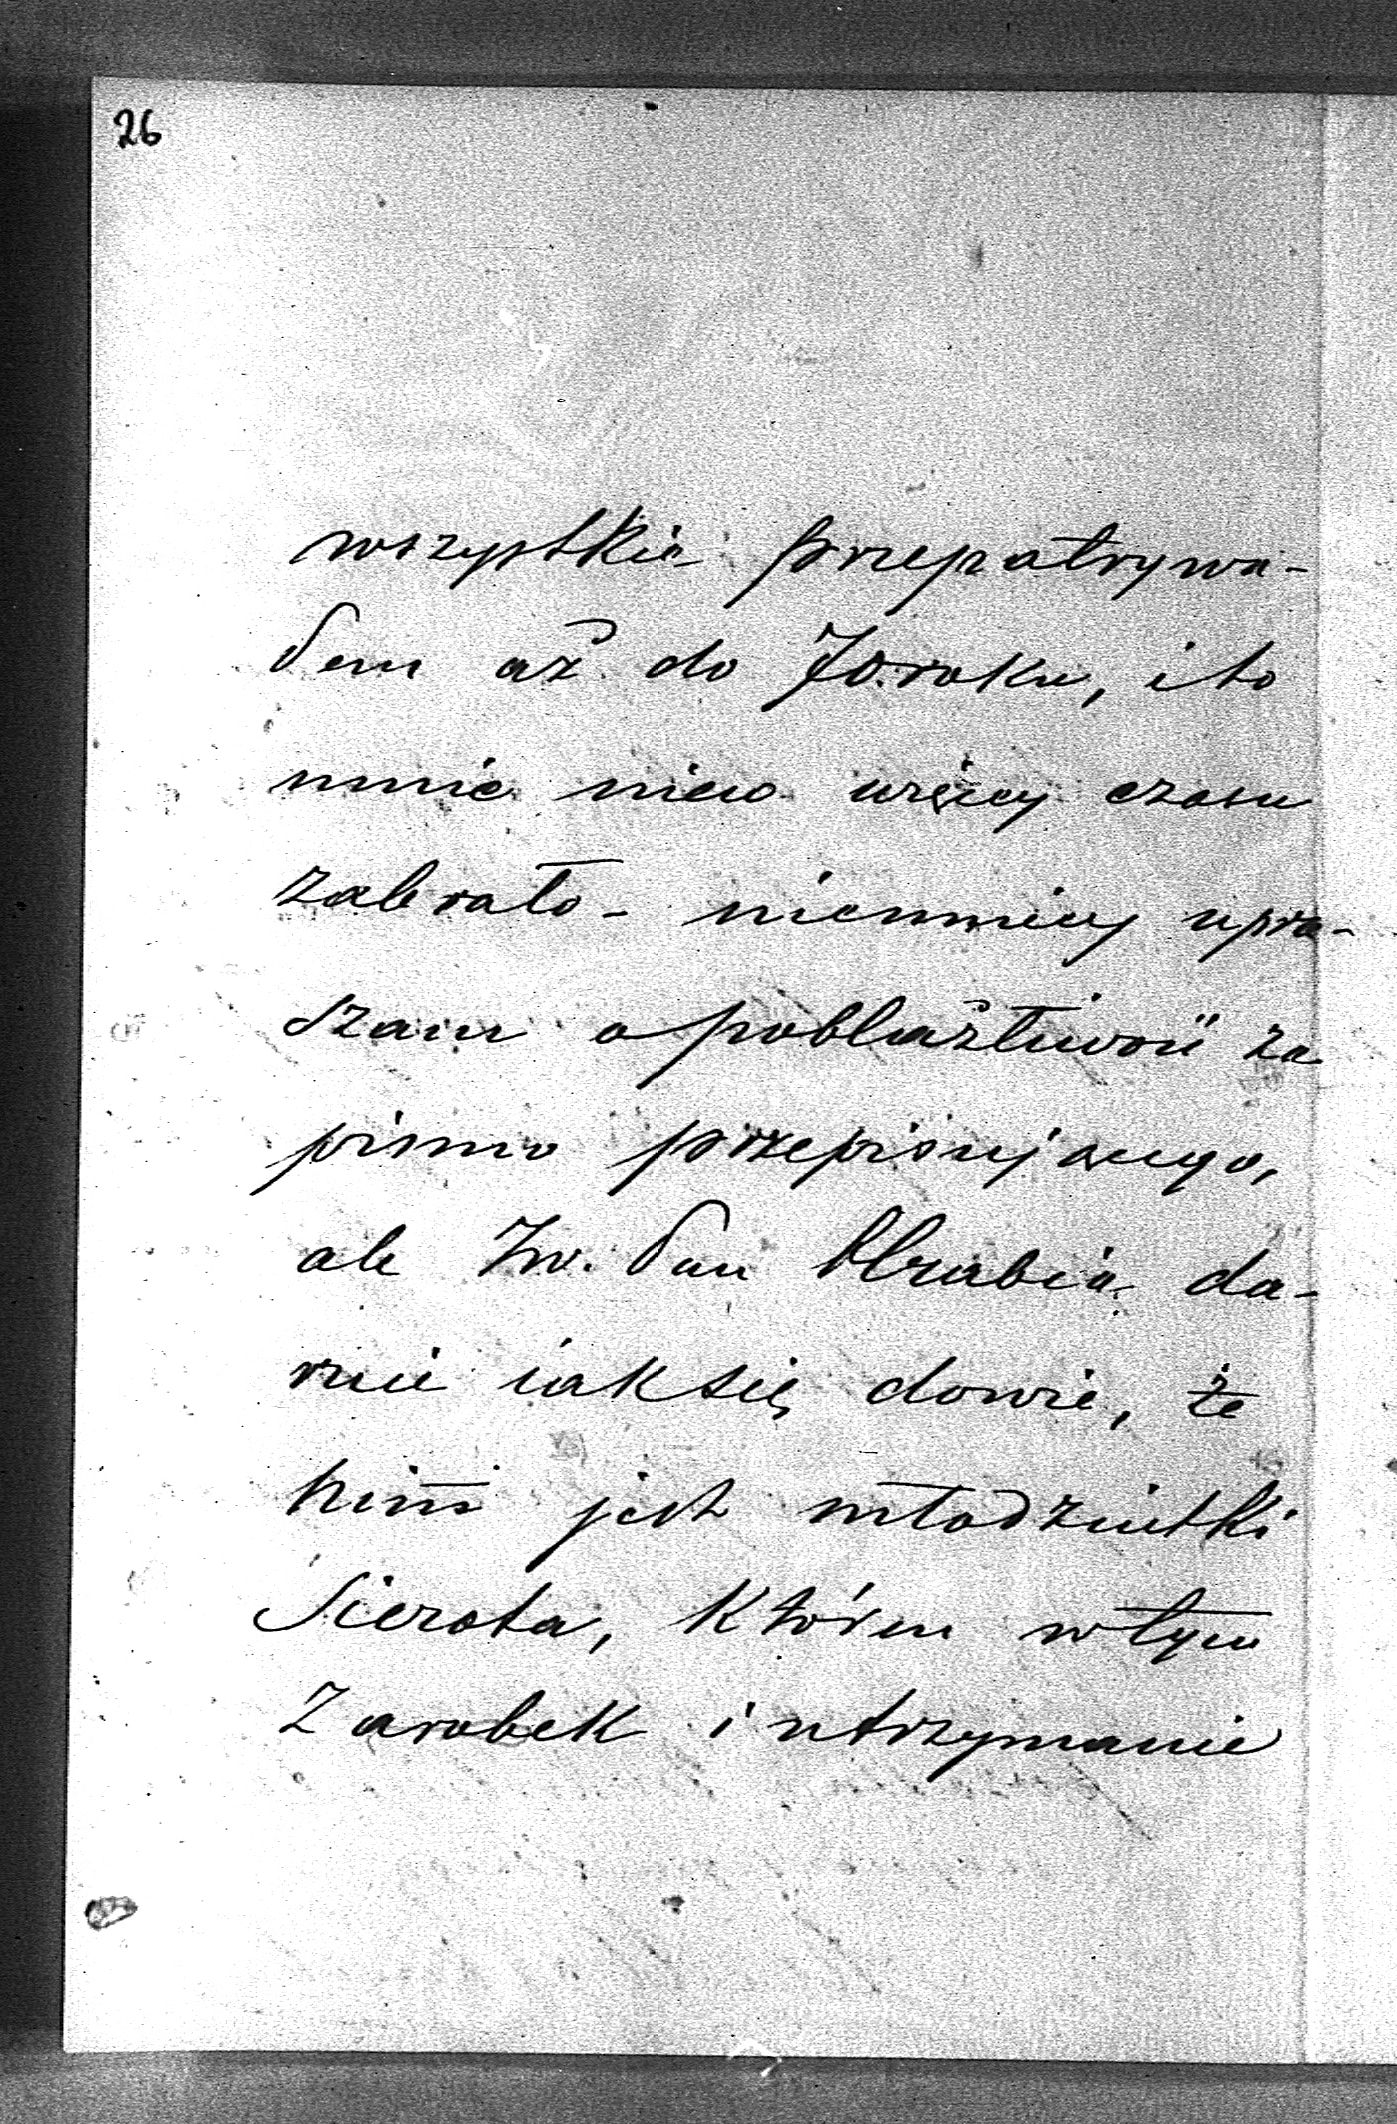 26
wszystkie przepatrywa-
łem aż do 70. roku, i to
mnie nieco więcey czasu
zabrało - niemniey upra-
szam o pobłażliwość za
pismo przepisującego,
ale Jw. Pan Hrabia da-
ruie iak się dowie, że
nim jest młodziutki
Sierota, którem w tym
Zarobek i utrzymanie